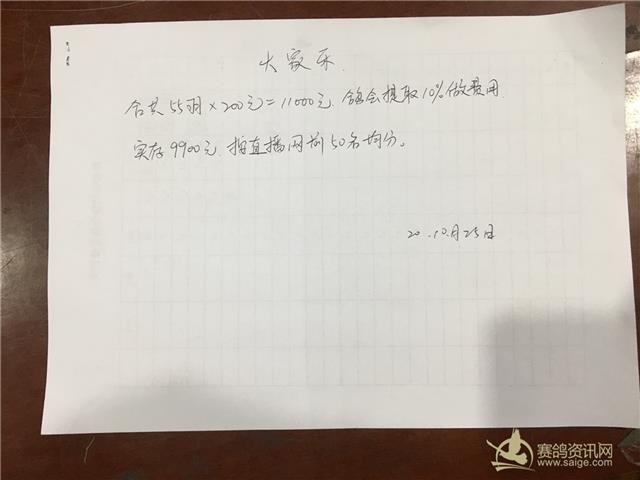 大家乐
合共55羽×200元=11000元. 鸽会提取10%做费用
实存9900元. 按直播网前50名均分。
20.10月25日
赛鸽资讯网
www.saige.com